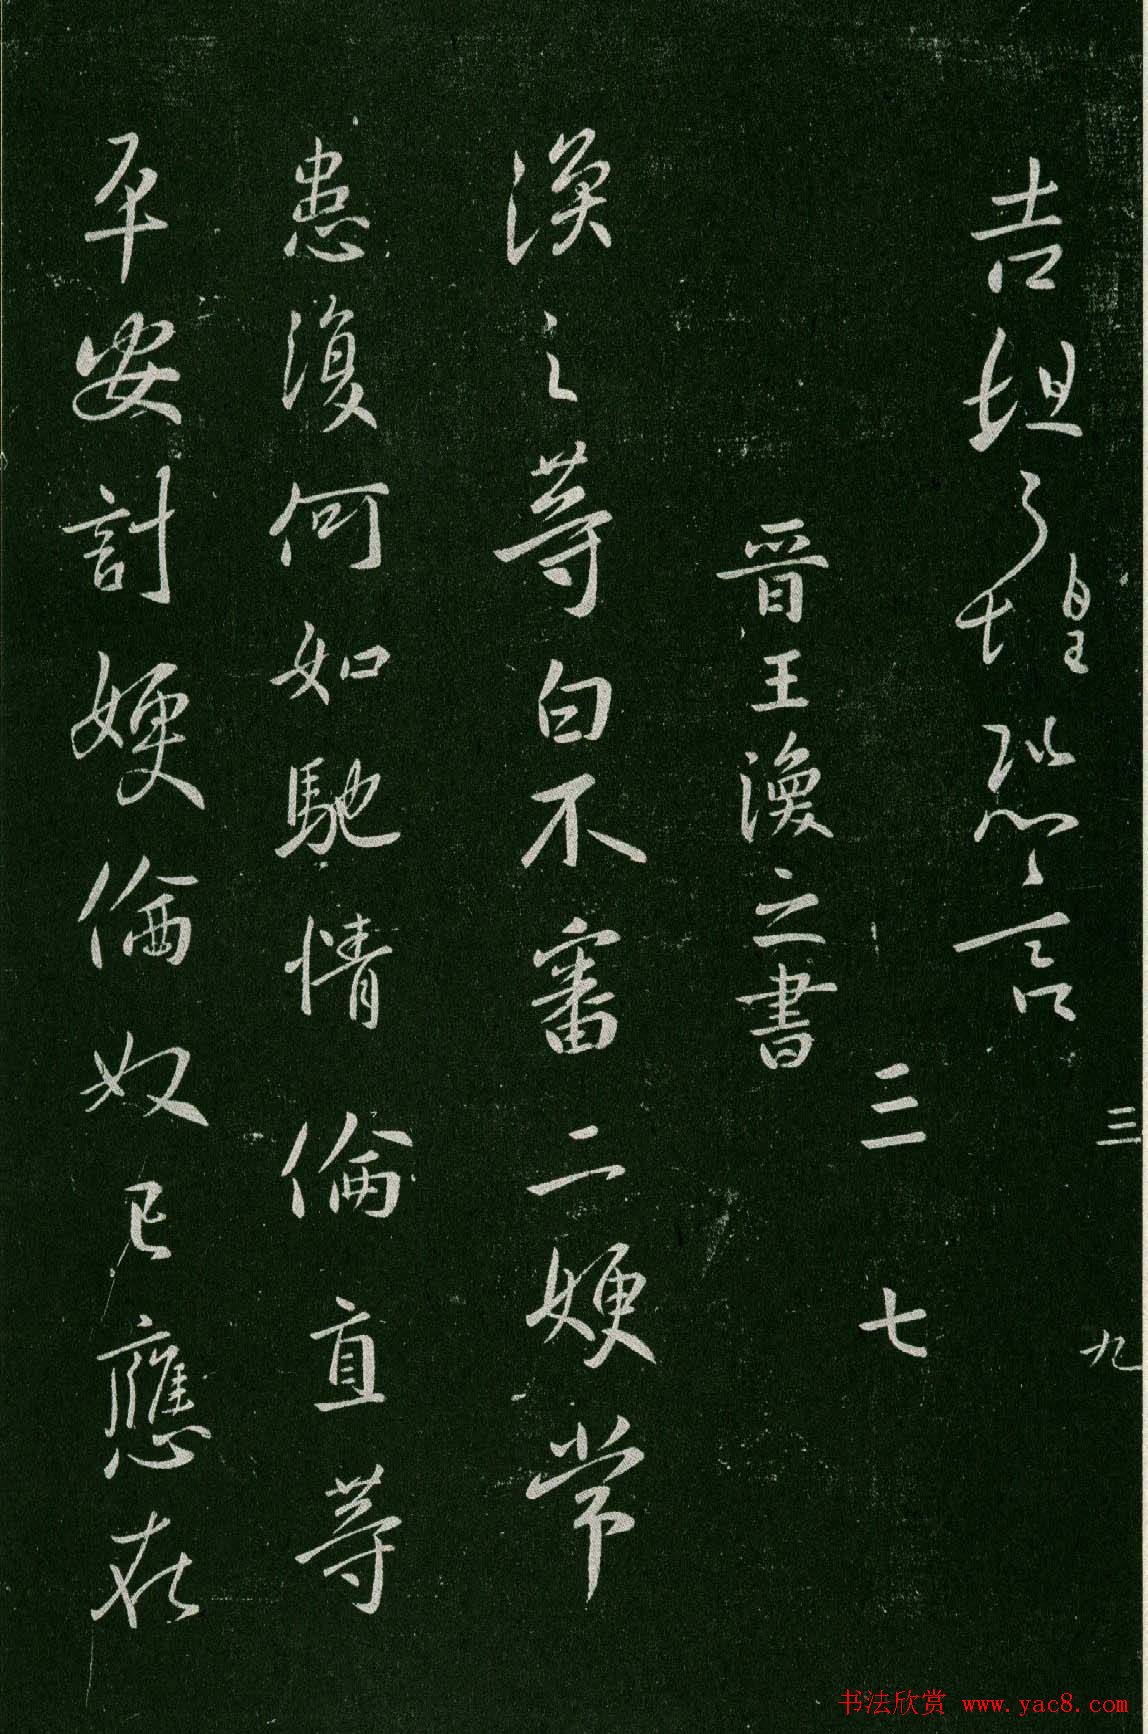 吉坦之煌恐々言
三 九
三 七
晋王渙之書
渙之等白不審二嫂常
患復何如馳情倫直等
平安計嫂倫奴已應在
书法欣赏 www.yac8.com